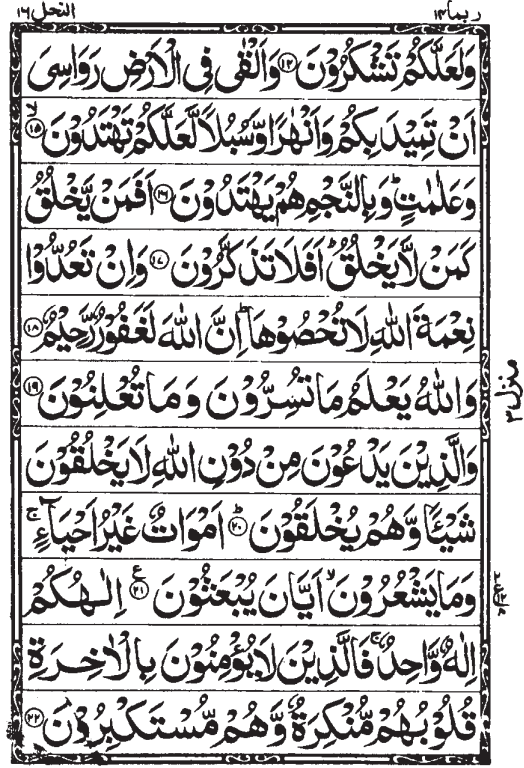 ربما ١٤
النحل ١٦
وَلَعَلَّكُمْ تَشْكُرُوْنَ ۝١٤ وَاَلْقٰى فِى الْاَرْضِ رَوَاسِىَ
اَنْ تَمِيْدَ بِكُمْ وَاَنْهٰرًا وَّسُبُلًا لَّعَلَّكُمْ تَهْتَدُوْنَ ۝١٥ۙ
وَعَلٰمٰتٍ ؕ وَبِالنَّجْمِ هُمْ يَهْتَدُوْنَ ۝١٦ اَفَمَنْ يَّخْلُقُ
كَمَنْ لَّا يَخْلُقُ ؕ اَفَلَا تَذَكَّرُوْنَ ۝١٧ وَاِنْ تَعُدُّوْا
نِعْمَةَ اللّٰهِ لَا تُحْصُوْهَا ؕ اِنَّ اللّٰهَ لَغَفُوْرٌ رَّحِيْمٌ ۝١٨
وَاللّٰهُ يَعْلَمُ مَا تُسِرُّوْنَ وَمَا تُعْلِنُوْنَ ۝١٩
وَالَّذِيْنَ يَدْعُوْنَ مِنْ دُوْنِ اللّٰهِ لَا يَخْلُقُوْنَ
شَيْـًٔا وَّهُمْ يُخْلَقُوْنَ ؕ۝٢٠ اَمْوَاتٌ غَيْرُ اَحْيَآءٍ ۚ
وَمَا يَشْعُرُوْنَ ۙ اَيَّانَ يُبْعَثُوْنَ ۝٢١ ع اِلٰـهُكُمْ
اِلٰهٌ وَّاحِدٌ ۚ فَالَّذِيْنَ لَا يُؤْمِنُوْنَ بِالْاٰخِرَةِ
قُلُوْبُهُمْ مُّنْكِرَةٌ وَّهُمْ مُّسْتَكْبِرُوْنَ ۝٢٢
منزل ٣